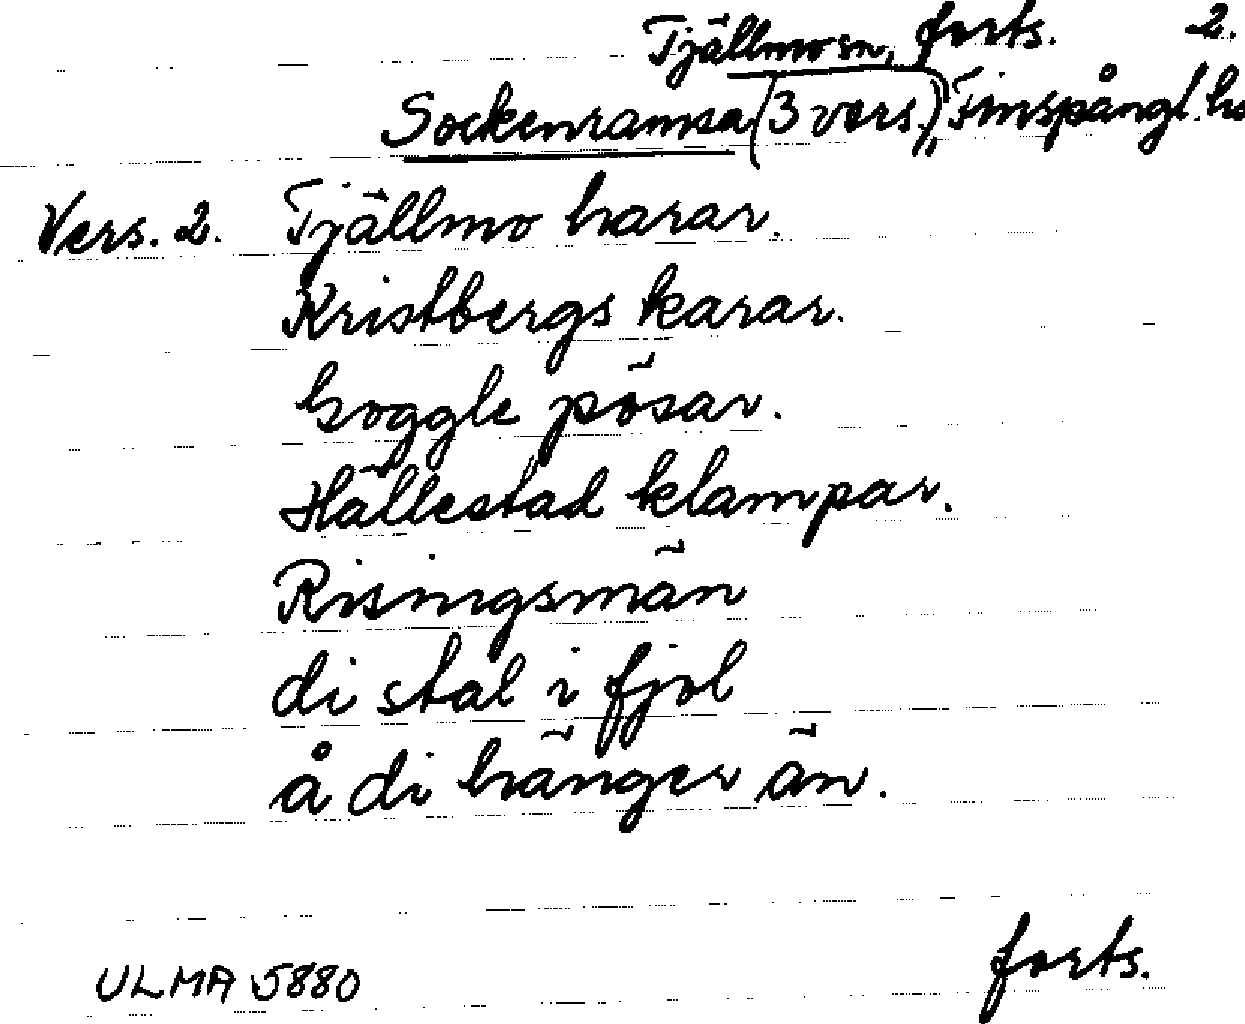 Tjällmo sn, forts. 2.
Sockenramsa (3 vers.) Finspångl. hd
Vers. 2. Tjällmo harar.
Kristbergs karar.
hoggle pösar.
Hällestad klampar.
Risingsmän
di stal i fjol
å di hänger än.
forts.
ULMA 5880